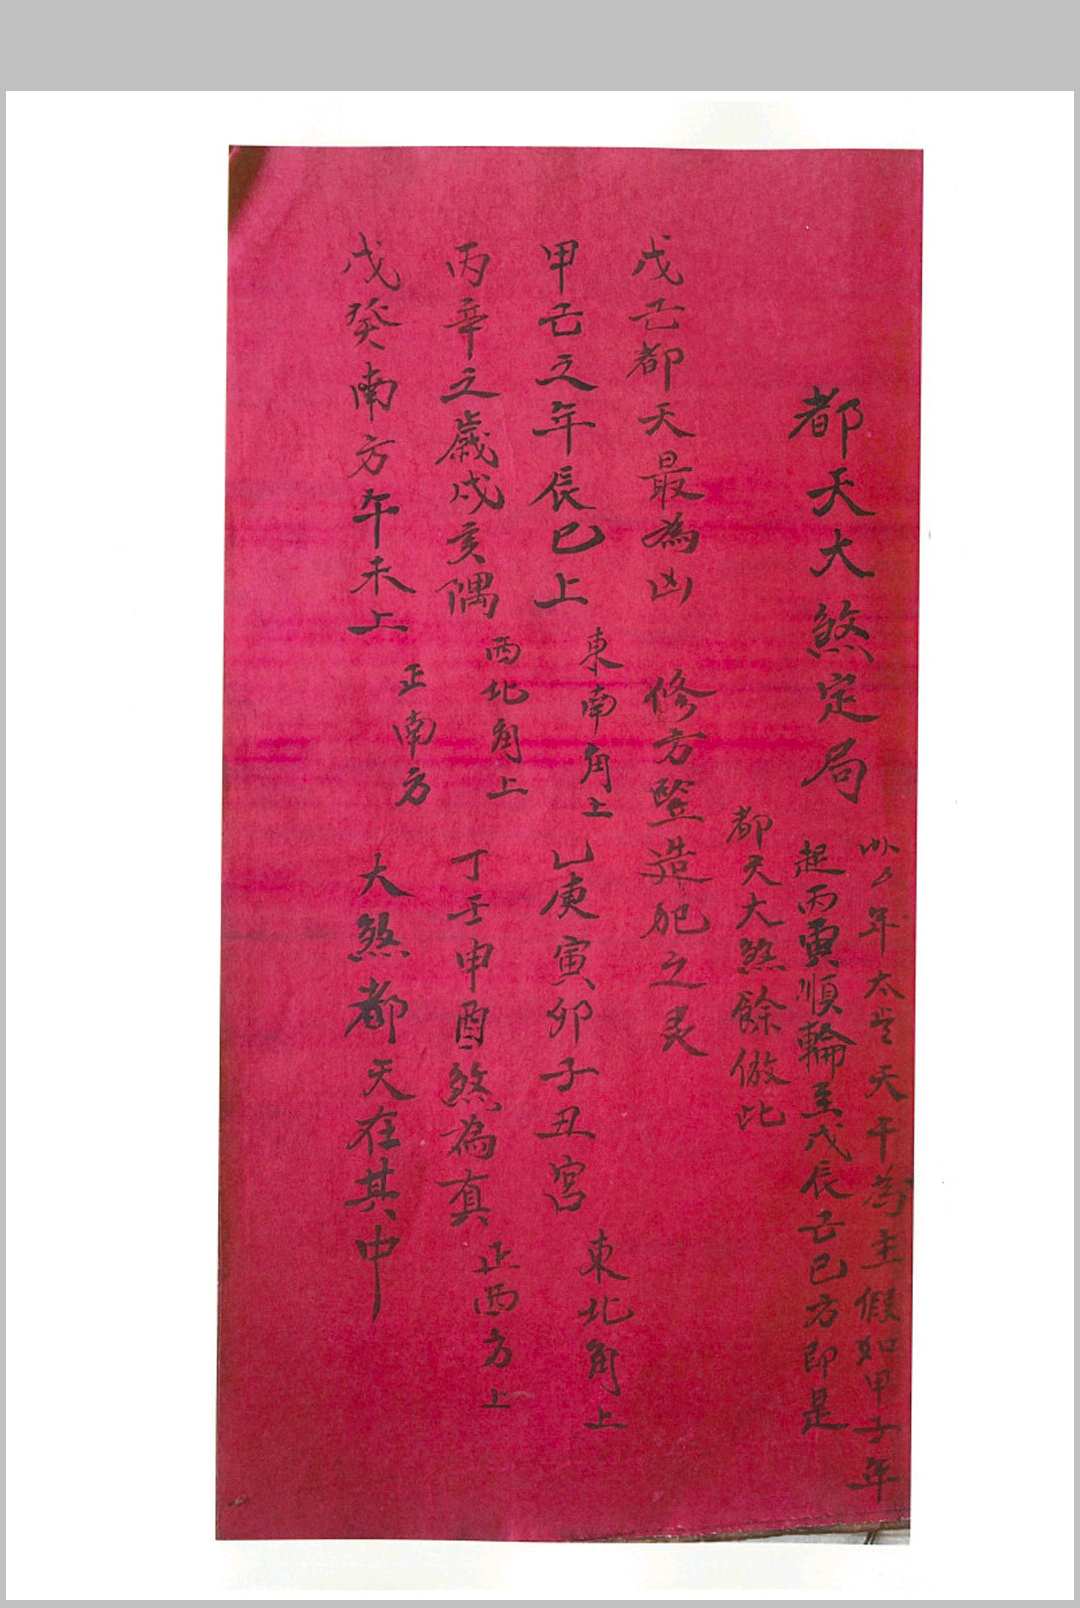 都天大煞定局
年太岁天干為主假如甲子年
起丙寅順輪至戊辰己巳方即是
都天大煞餘倣比
戊己都天最為凶 修方竪造犯之灵
甲己之年辰巳上 東南角上 乙庚寅卯子丑宮 東北角上
丙辛之歲戌亥隅 西北角上 丁壬申酉煞為真 正西方上
戊癸南方午未上 正南方 大煞都天在其中